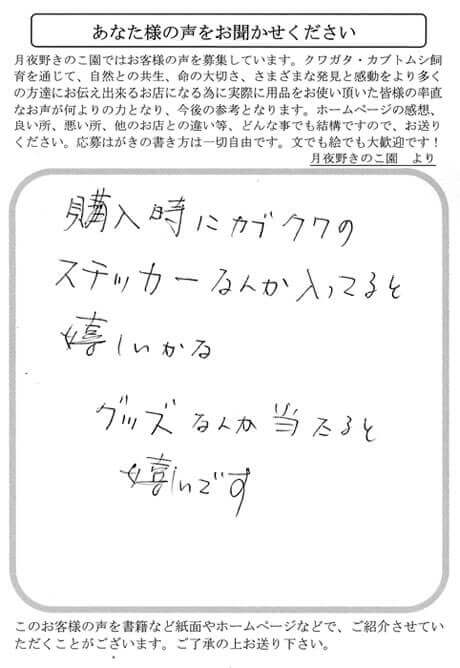 あなた様の声をお聞かせください
月夜野きのこ園ではお客様の声を募集しています。クワガタ・カブトムシ飼
育を通じて、自然との共生、命の大切さ、さまざまな発見と感動をより多く
の方達にお伝え出来るお店になる為に実際に用品をお使い頂いた皆様の率直
なお声が何よりの力となり、今後の参考となります。ホームページの感想、
良い所、悪い所、他のお店との違い等、どんな事でも結構ですので、お送り
ください。応募はがきの書き方は一切自由です。文でも絵でも大歓迎です！
月夜野きのこ園　より
購入時にカブクワの
ステッカーなんか入ってると
嬉しいかる
グッズなんか当たると
嬉しいです
このお客様の声を書籍など紙面やホームページなどで、ご紹介させていた
だくことがございます。ご了承の上お送り下さい。